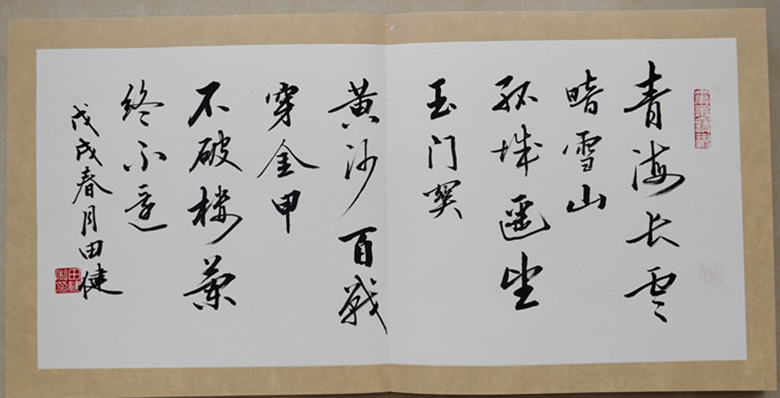 青海长雲
暗雪山
孤城遥望
玉门関
黄沙百战
穿金甲
不破楼蘭
终不还
戊戌春月田健